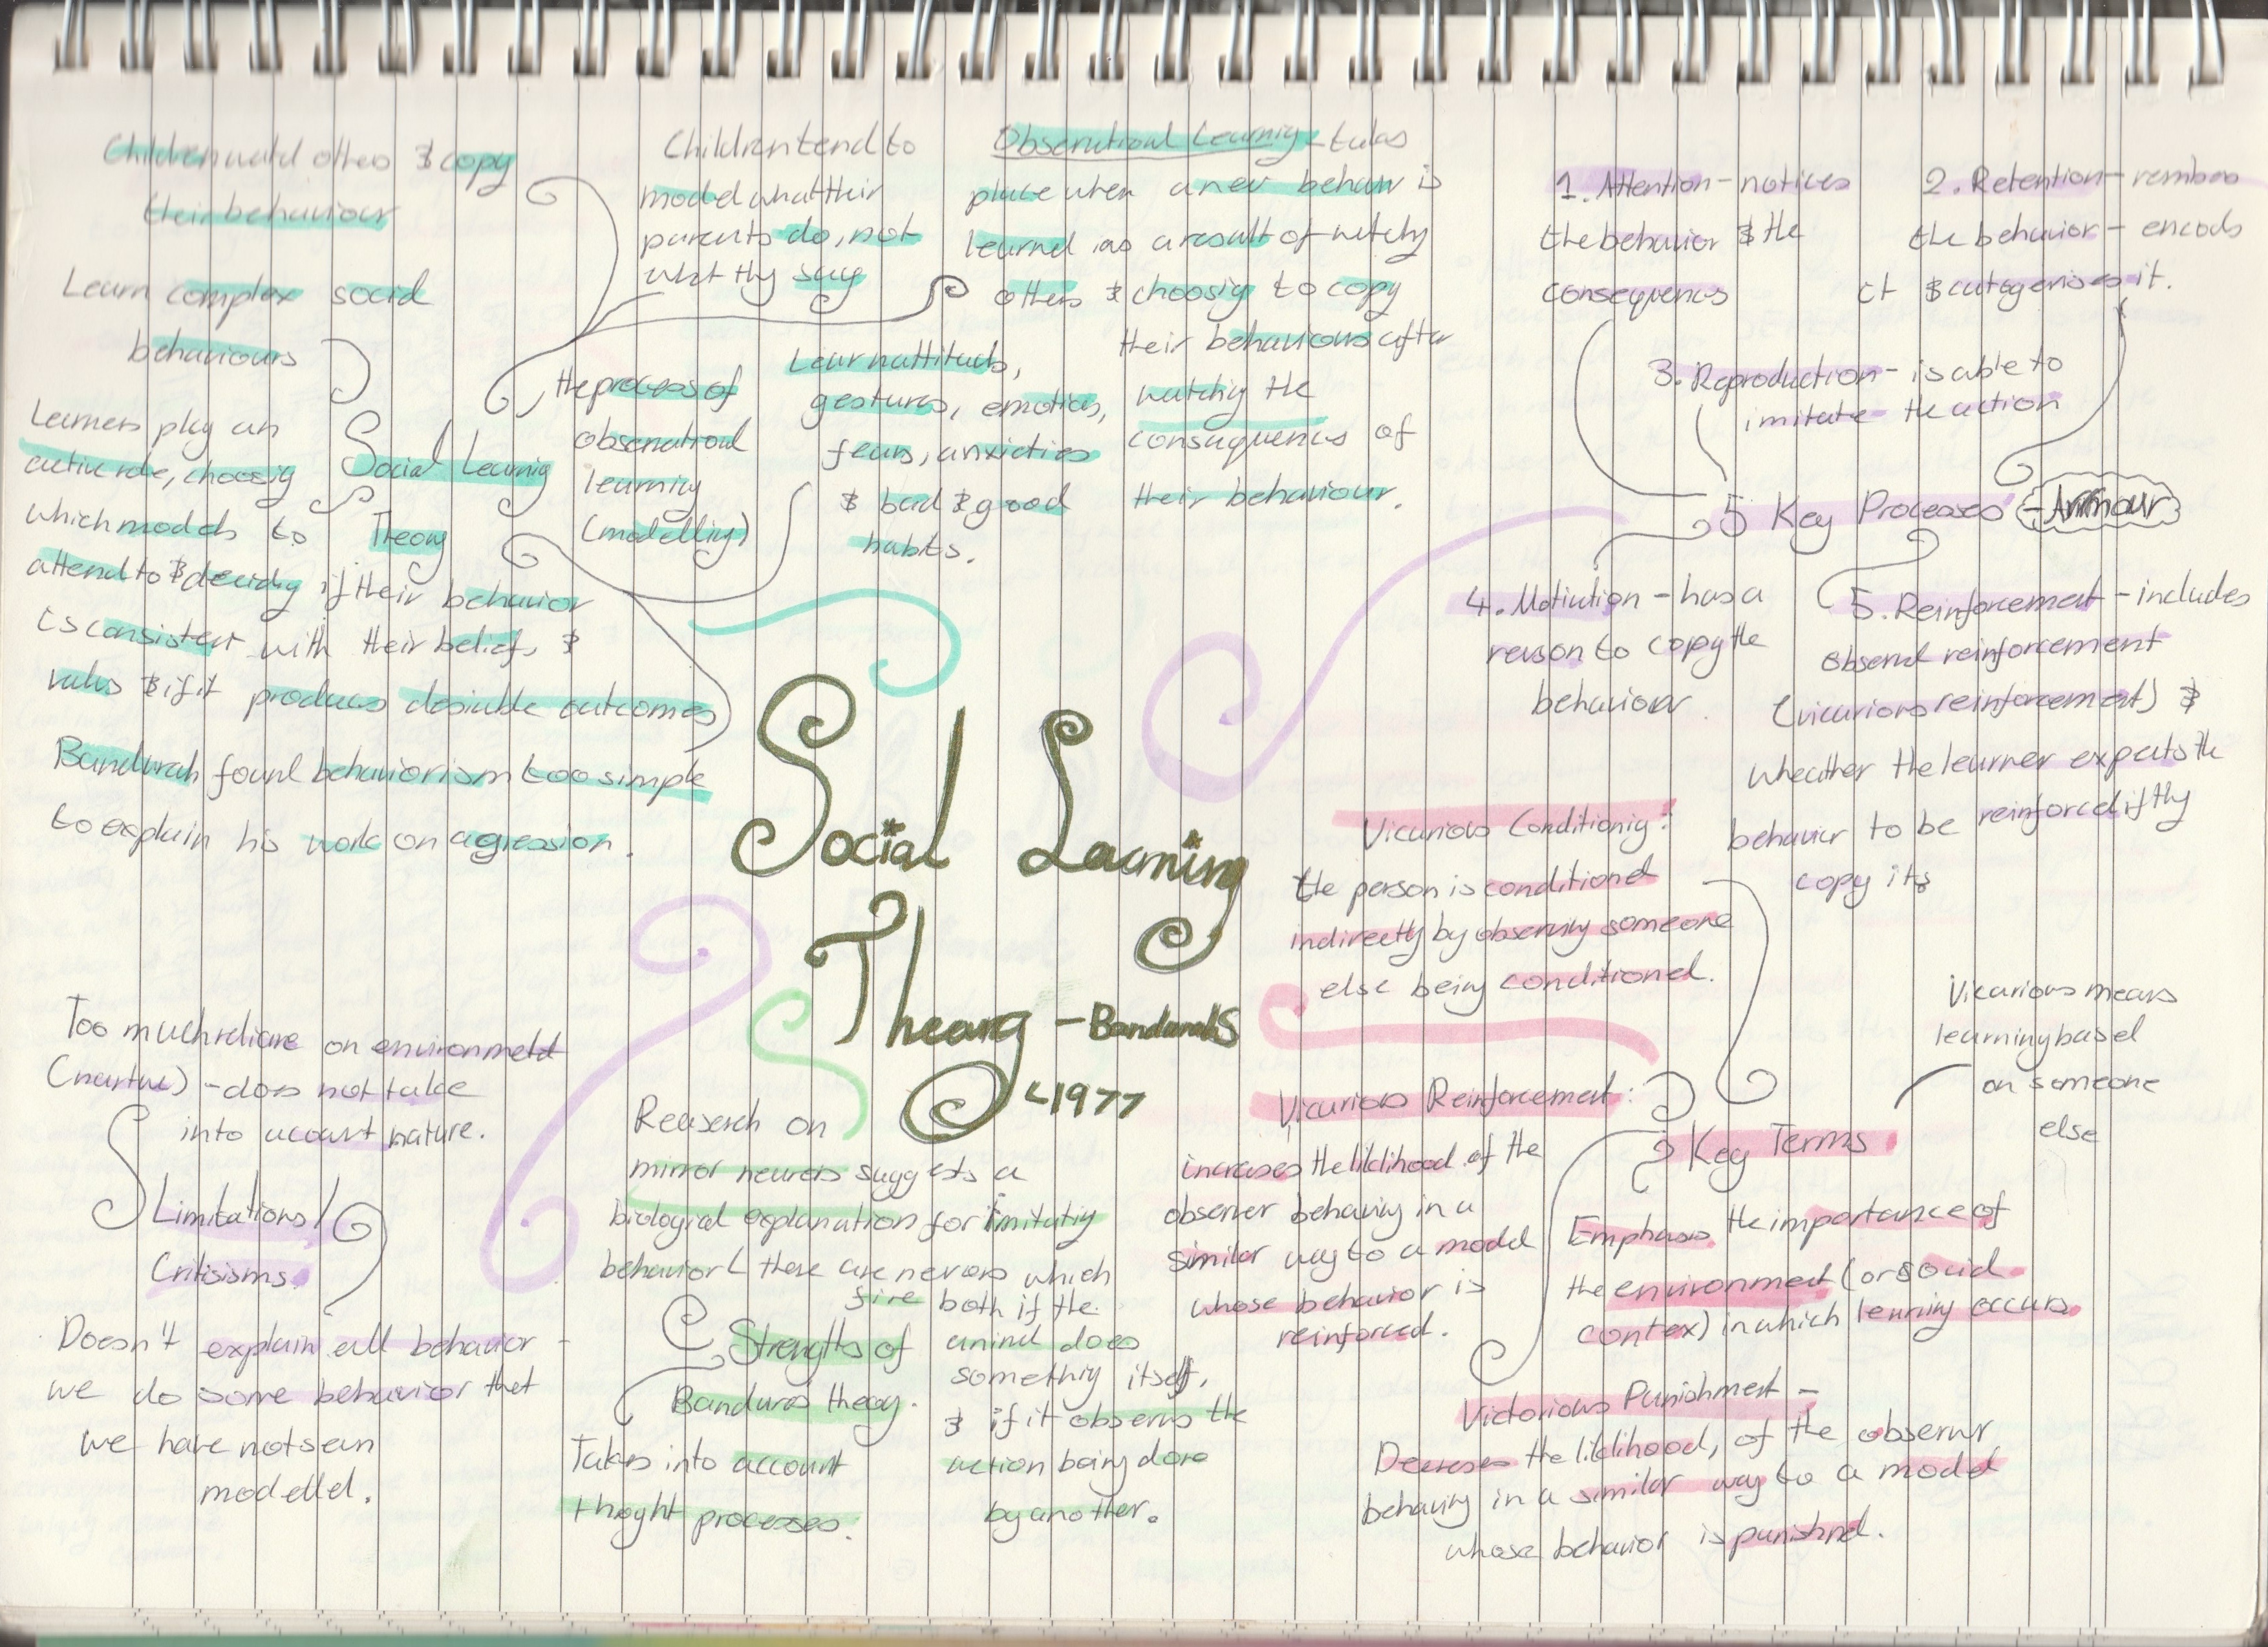 Children watch others & copy
their behaviour
Learn complex social
behaviours
Learners play an
active role, choosing
which models to
attend to & deciding if their behavior
is consistent with their beliefs &
rules & if it produces desirable outcomes
Bandurah found behaviorism too simple
to explain his work on agression.
Social Learning
Theory
Children tend to
model what their
parents do, not
what they say
the process of
observational
learning
(modelling)
Learn attituds,
gestures, emotions,
fears, anxieties
& bad & good
habits.
Observational Learning - takes
place when a new behavior is
learned as a result of watching
others & choosing to copy
their behaviours after
watching the
consequences of
their behaviour.
1. Attention - notices
the behavior & the
consequences
2. Retention - rembers
the behavior - encods
it & catagorises it.
3. Reproduction - is able to
imitate the action
5 Key Processes - Armour
4. Motivation - has a
reason to copy the
behaviour
5. Reinforcement - includes
observed reinforcement
(vicarious reinforcement) &
wheather the learner expects the
behavior to be reinforced if they
copy it
Social Learning
Theory - Bandurahs
1977
Vicarious Conditioning:
the person is conditioned
indirectly by observing someone
else being conditioned.
Vicarious means
learning based
on someone
else
Vicarious Reinforcement:
increases the liklihood of the
observer behaving in a
similar way to a model
whose behavior is
reinforced.
Key Terms
Emphasis the importance of
the environment (or social
contex) in which learning occurs.
Victorious Punishment -
Decreses the liklihood, of the observer
behaving in a similar way to a model
whose behavior is punished.
Too much reliance on environment
(nurture) - does not take
into acount nature.
Limitations/
Critisisms.
Doesn't explain all behavior -
we do some behavior that
we have not seen
modelled.
Reaserch on
mirror neurons suggests a
biological explanation for imitating
behavior ( there are nerons which
fire both if the
animal does
something itself,
& if it observes the
action being done
by another.
Strengths of
Banduras theory.
Takes into account
thoght processes.